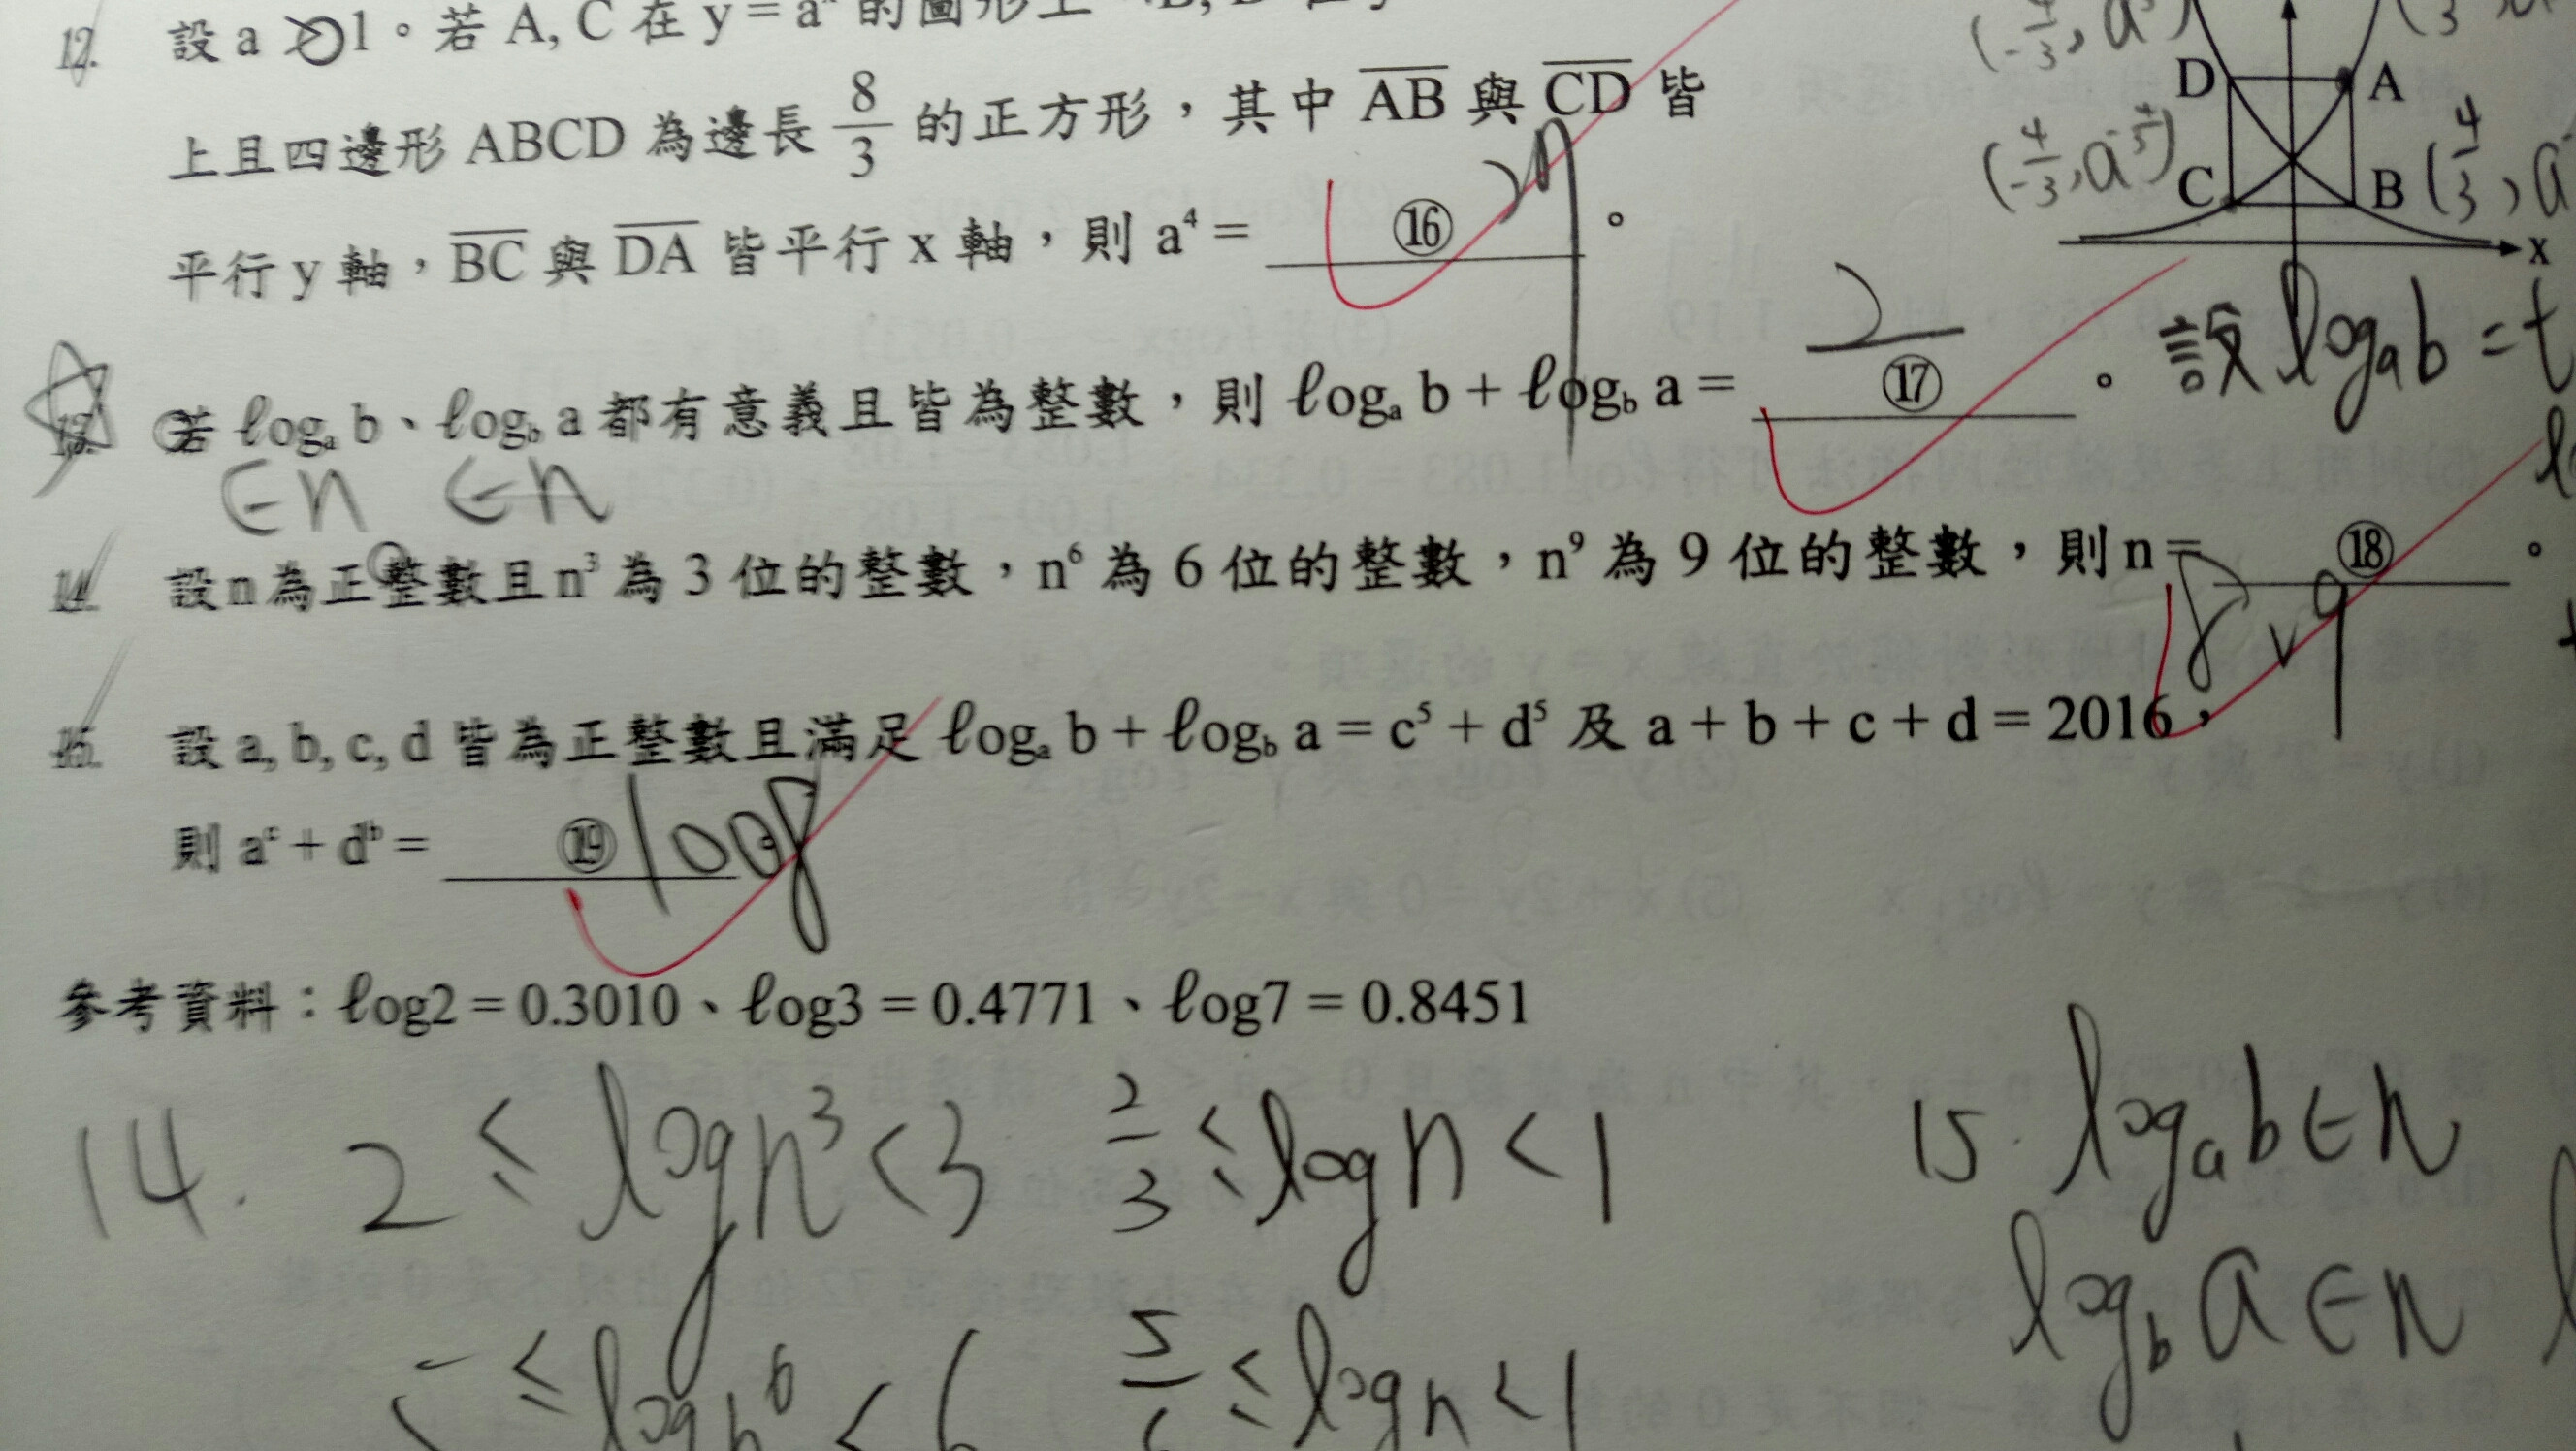 12. 設 a > 1。若 A, C 在 y = aˣ 的圖形上
上且四邊形 ABCD 為邊長 8/3 的正方形，其中 AB 與 CD 皆
平行 y 軸，BC 與 DA 皆平行 x 軸，則 a⁴ = ⑯ 。
D A
C B
x
(-4/3, a
(4/3, a
設 logₐb = t
13. 若 ℓogₐ b、ℓog_b a 都有意義且皆為整數，則 ℓogₐ b + ℓog_b a = 2 ⑰ 。
∈n ∈n
14. 設 n 為正整數且 n³ 為 3 位的整數，n⁶ 為 6 位的整數，n⁹ 為 9 位的整數，則 n = ⑱ 。
8 v 9
15. 設 a, b, c, d 皆為正整數且滿足 ℓogₐ b + ℓog_b a = c⁵ + d⁵ 及 a + b + c + d = 2016，
則 aᶜ + dᵇ = ⑲ 1008
參考資料：ℓog2 = 0.3010、ℓog3 = 0.4771、ℓog7 = 0.8451
14. 2 ≤ log n³ < 3 2/3 ≤ log n < 1
15. logₐb ∈ n
log_b a ∈ n
≤ log n⁶ < 6 5/6 ≤ log n < 1